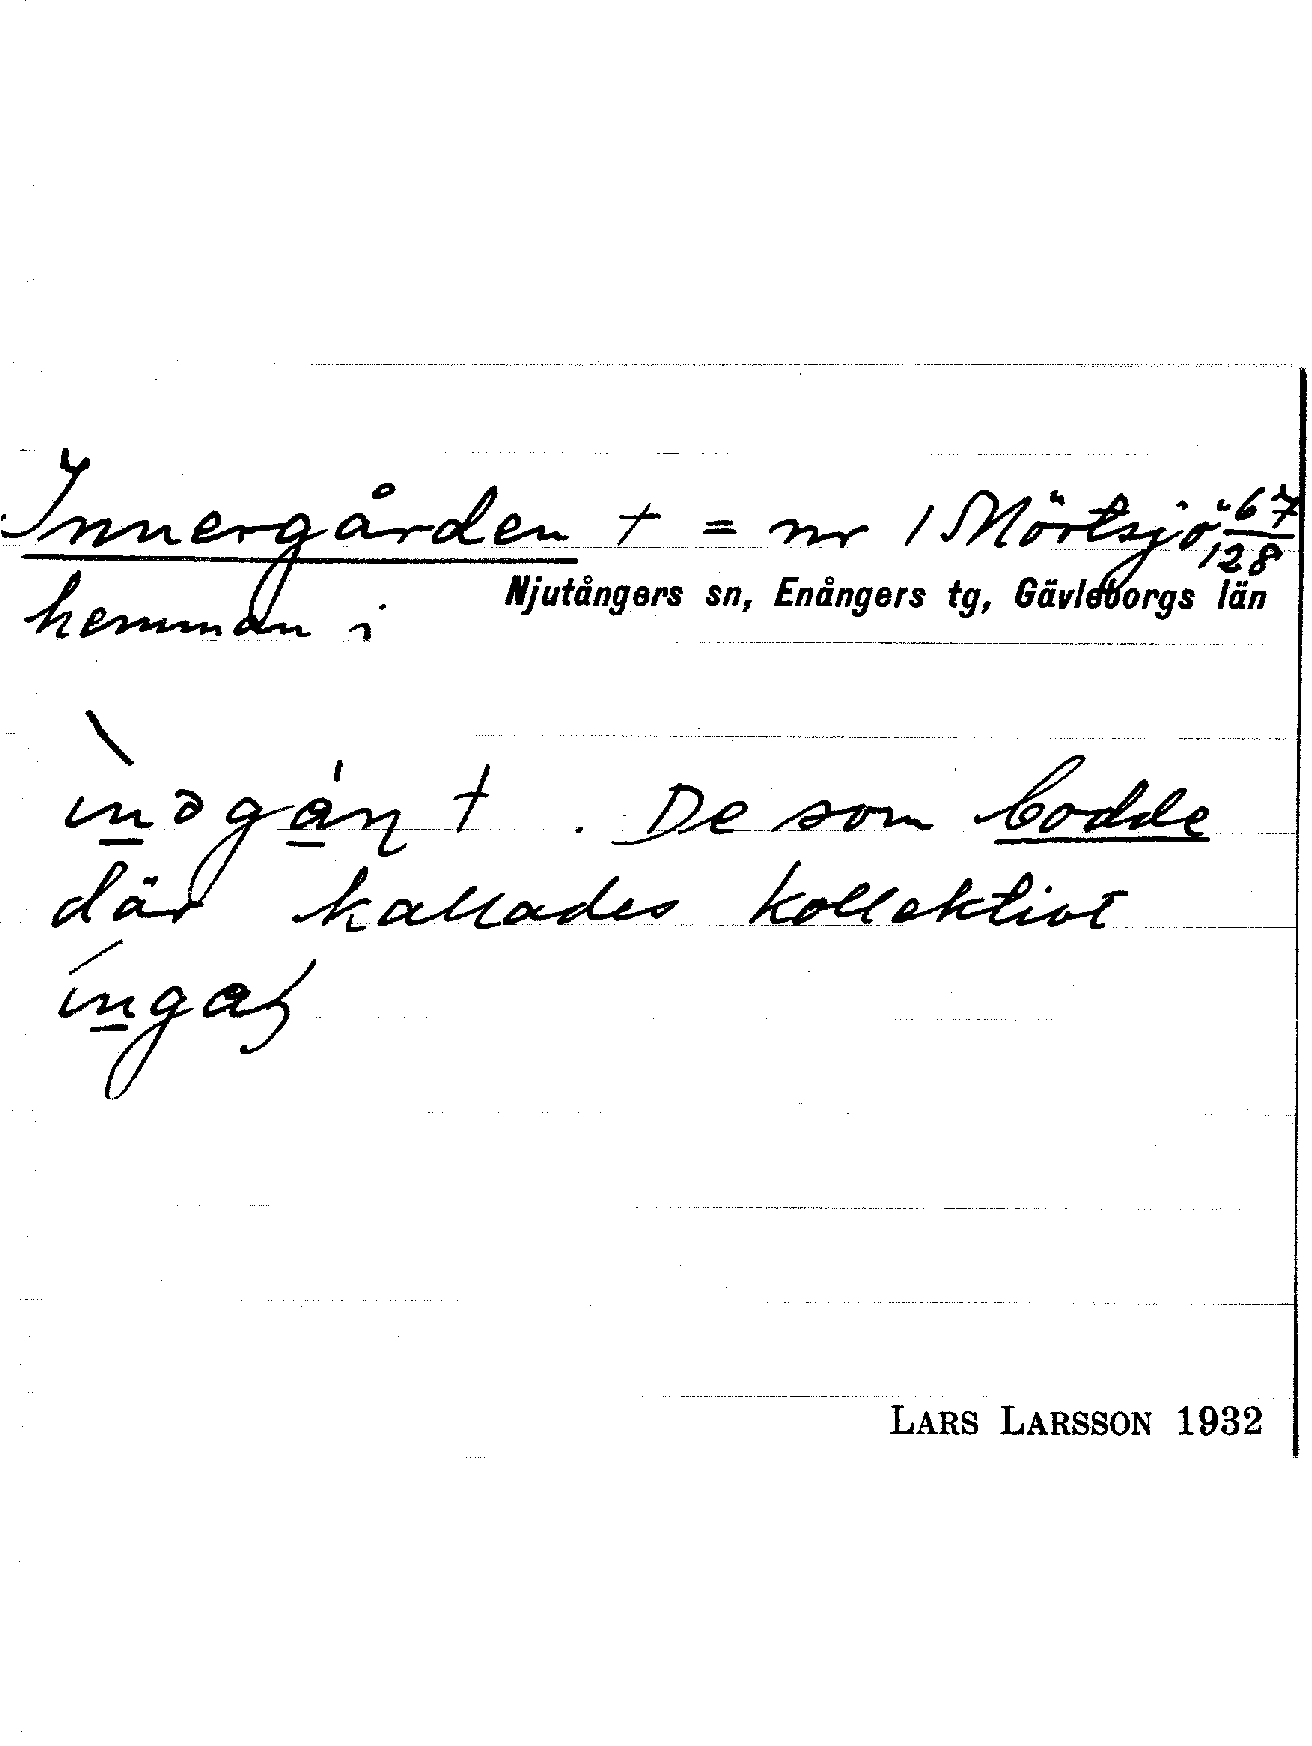 Innergården + = nr 1 Mörtsjö 67/128
Njutångers sn, Enångers tg, Gävleborgs län
hemman i
De som bodde
där kallades kollektivt
LARS LARSSON 1932